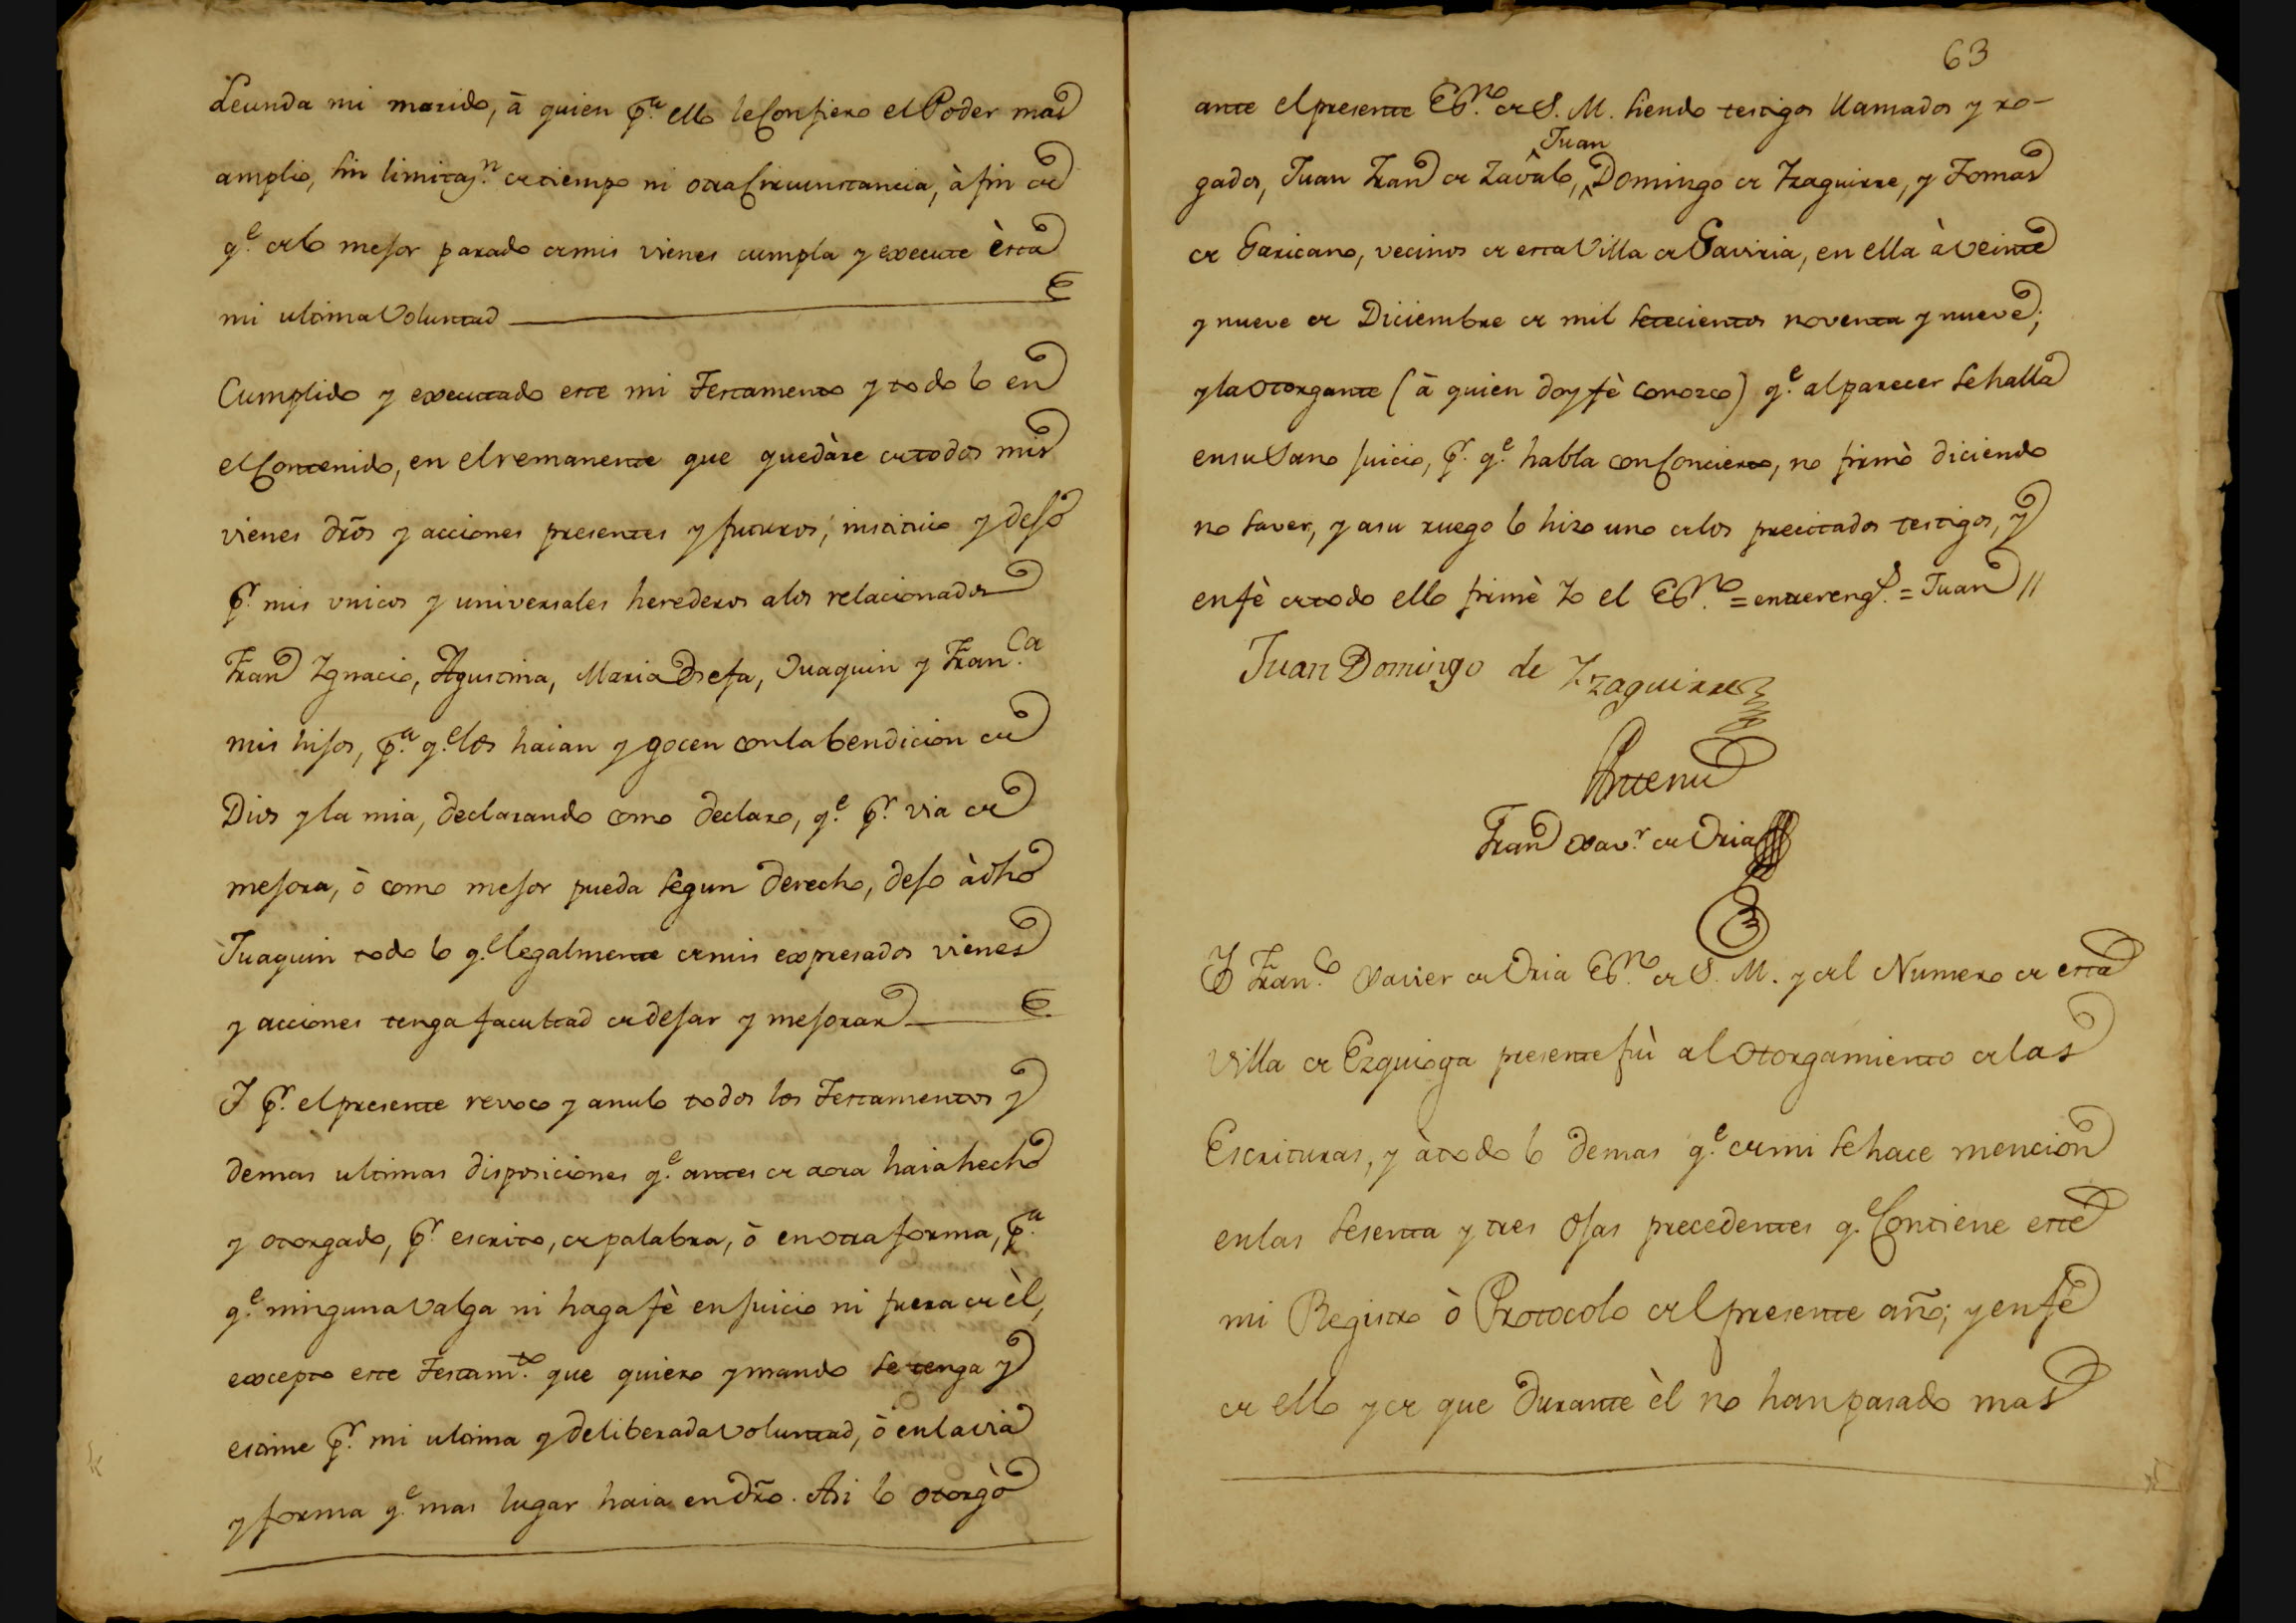 Leunda mi marido, à quien p.ª ello le Confiero el Poder mas
amplio, sin limitaz.n de tiempo ni otra Circunstancia, à fin de
q.e de lo mejor parado de mis vienes cumpla y execute èsta
mi ultima Voluntad
Cumplido y executado este mi Testamento y todo lo en
el Contenido, en el remanente que quedàre de todos mis
vienes dr̃os y acciones presentes y futuros, instituio y dejo
p.r mis vnicos y universales herederos a los relacionados
Fran.co Ygnacio, Agustina, Maria Josefa, Juaquin y Fran.ca
mis hijos, p.ª q.e los haian y gocen con la bendicion de
Dios y la mia, declarando como declaro, q.e p.r via de
mejora, ò como mejor pueda segun derecho, dejo à dho
Juaquin todo lo q.e legalmente de mis expresados vienes
y acciones tenga facultad de dejar y mejorar
Y p.r el presente revoco y anulo todos los Testamentos y
demas ultimas disposiciones q.e antes de aora haia hecho
y otorgado, p.r escrito, de palabra, ò en otra forma, p.ª
q.e ninguna valga ni haga fè en juicio ni fuera de èl,
excepto este Testam.to que quiero y mando se tenga y
estime p.r mi ultima y deliberada Voluntad, ò en la via
y forma q.e mas lugar haia en dr̃o. Asi lo otorgò
63
ante el presente Ess.no de S. M. siendo testigos llamados y ro-
Juan
gados, Juan Fran.co de Zavalo, Domingo de Yzaguirre, y Tomas
de Garicano, vecinos de esta Villa de Gaviria, en ella à veinte
y nueve de Diciembre de mil setecientos noventa y nueve;
y la otorgante (à quien doy fè conozco) q.e al parecer se halla
en su Sano juicio, p.r q.e habla con Concierto, no firmò diciendo
no saver, y a su ruego lo hizo uno de los precitados testigos, y
en fè de todo ello firmè Yo el Ess.no = entrereng.s = Juan //
Juan Domingo de Yzaguirre
Antemi
Fran.co Xav.r de Oria
Yo Fran.co Xavier de Oria Ess.no de S. M. y del Numero de esta
Villa de Ezquioga presente fuì al Otorgamiento de las
Escrituras, y à todo lo demas q.e de mi se hace mencion
en las sesenta y tres Ojas precedentes q.e Contiene este
mi Registro ò Protocolo del presente año; y en fè
de ello y de que durante èl no han pasado mas